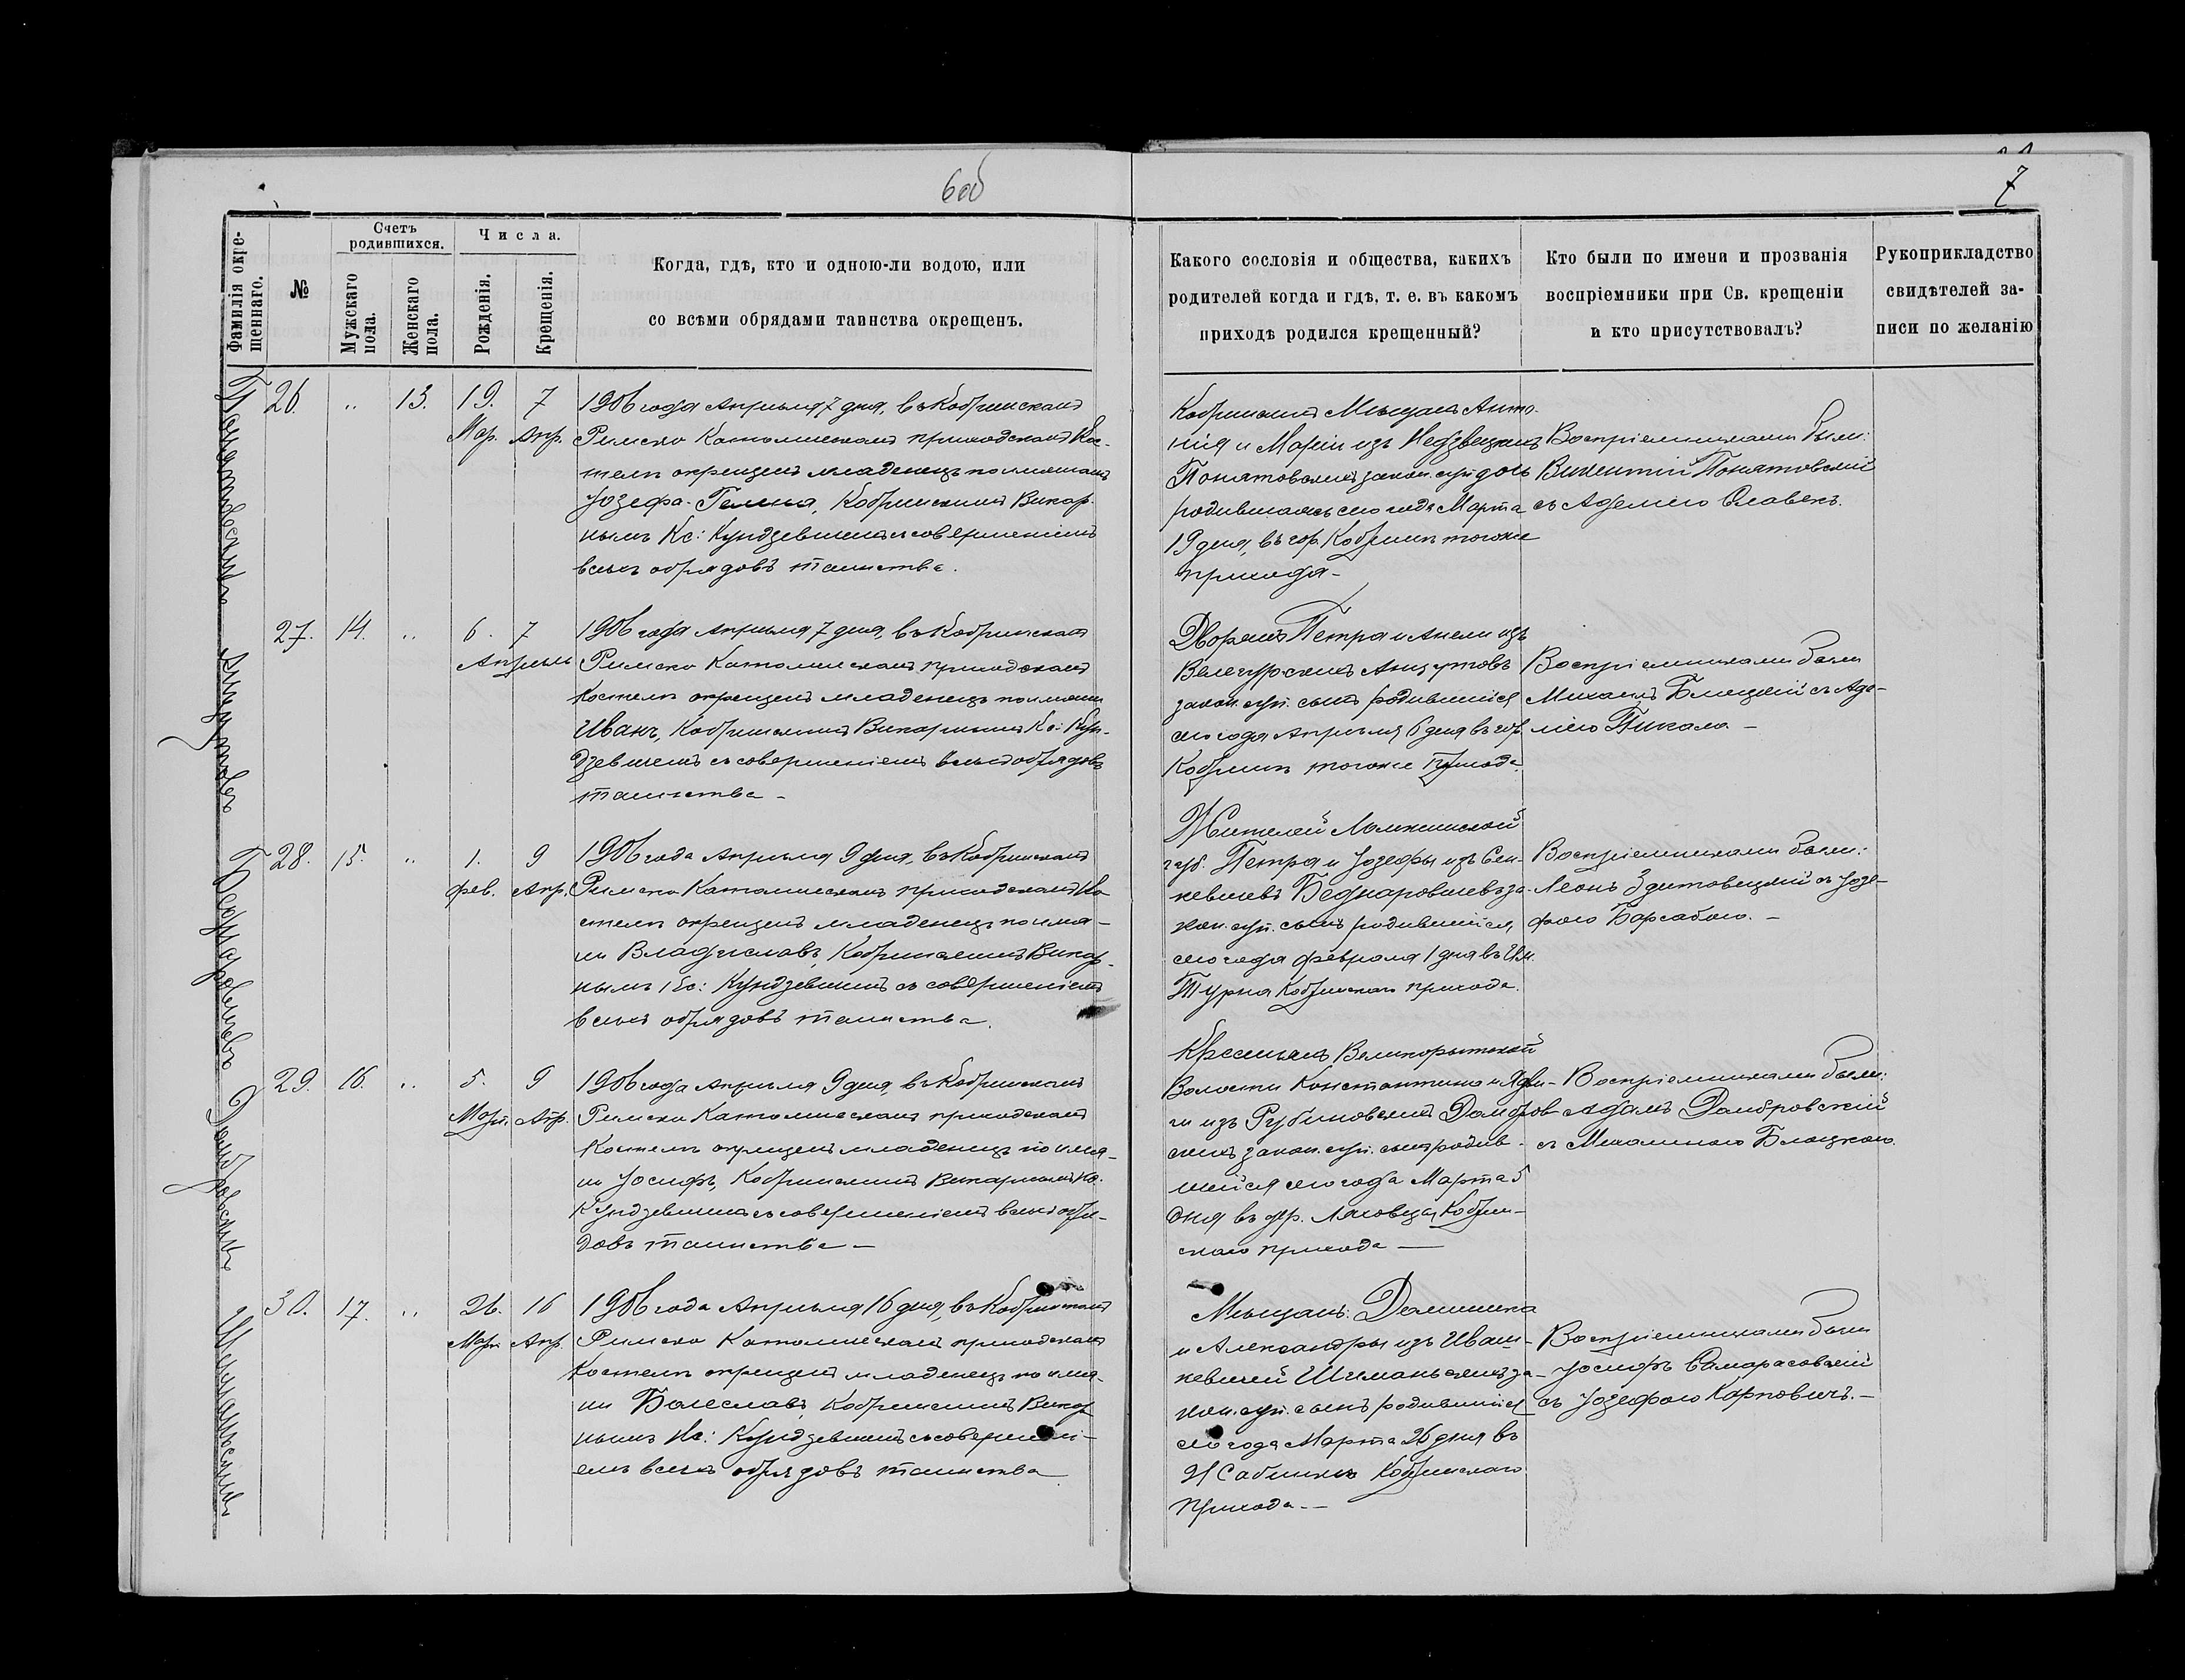 6об
7
Фамилія окре-
щеннаго.
№
Счетъ
родившихся.
Мужскаго
пола.
Женскаго
пола.
Числа.
Рожденія.
Крещенія.
Когда, гдѣ, кто и одною-ли водою, или
со всѣми обрядами таинства окрещенъ.
Какого сословія и общества, какихъ
родителей когда и гдѣ, т. е. въ какомъ
приходѣ родился крещенный?
Кто были по имени и прозванія
воспріемники при Св. крещеніи
и кто присутствовалъ?
Рукоприкладство
свидѣтелей за-
писи по желанію
Понятовскихъ
26. " 13. 19. 7
Мар. Апр.
1906 года Апрѣля 7 дня, въ Кобринскомъ
Римско Католическомъ приходскомъ Кос-
телѣ окрещенъ младенецъ по имени
Іозефа-Гелена, Кобринскимъ Викар-
нымъ Кс: Кундзевичемъ съ совершеніемъ
всѣхъ обрядовъ таинства.
Кобринскихъ Мѣщанъ Анто-
нія и Маріи изъ Недзвецкихъ
Понятовскихъ закон. суп. дочь
родившаяся сего года Марта
19 дня, въ гор. Кобринѣ того же
прихода-
Воспріемниками были:
Викентій Понятовскій
съ Аделею
27. 14. " 6. 7
Апрѣль
1906 года Апрѣля 7 дня, въ Кобринскомъ
Римско Католическомъ приходскомъ
Костелѣ окрещенъ младенецъ по имени
Иванъ, Кобринскимъ Викарнымъ Кс: Кун-
дзевичемъ съ совершеніемъ всѣхъ обрядовъ
таинства-
Дворянъ Петра и Анели изъ
Анцутовъ
закон. суп. сынъ родившійся
сего года Апрѣля 6 дня въ гор.
Кобринѣ того же прихода
Воспріемниками были
Михаилъ съ Аде-
лею
Беднаровичевъ
28. 15. " 1. 9
Фев. Апр.
1906 года Апрѣля 9 дня, въ Кобринскомъ
Римско Католическомъ приходскомъ Ко-
стелѣ окрещенъ младенецъ по име-
ни Владиславъ, Кобринскимъ Викар-
нымъ Кс: Кундзевичемъ съ совершеніемъ
всѣхъ обрядовъ таинства.
Жителей Ломжинской
губ. Петра и Іозефы изъ Сен-
кевичевъ Беднаровичевъ за-
кон. суп. сынъ родившійся
сего года февраля 1 дня въ Им.
Турна Кобринскаго прихода.
Воспріемниками были:
Леонъ Здитовецкій съ Іозе-
фою -
Домбровскихъ
29. 16. " 5. 9
Март. Апр.
1906 года Апрѣля 9 дня, въ Кобринскомъ
Римско Католическомъ приходскомъ
Костелѣ окрещенъ младенецъ по име-
ни Іосифъ, Кобринскимъ Викарнымъ Кс.
Кундзевичемъ съ совершеніемъ всѣхъ обря-
довъ таинства-
Крестьянъ Великорытской
Волости Константина и Ядви-
ги изъ Рубиновскихъ Домбров-
скихъ закон. суп. сынъ родив-
шійся сего года Марта 5
дня въ дер. Кобрин-
скаго прихода-
Воспріемниками были:
Адамъ Домбровскій
съ Михалиною Блоцкою.
Шиманьскихъ
30. 17. " 26. 16
Март Апр.
1906 года Апрѣля 16 дня, въ Кобринскомъ
Римско Католическомъ приходскомъ
Костелѣ окрещенъ младенецъ по име-
ни Болеславъ, Кобринскимъ Викар-
нымъ Кс: Кундзевичемъ съ совершені-
емъ всѣхъ обрядовъ таинства
Мѣщанъ: Доминика
и Александры изъ Иваш-
кевичей Шиманьскихъ за-
кон. суп. сынъ родившійся
сего года Марта 26 дня въ
Кобринскаго
прихода-
Воспріемниками были
Іосифъ
съ Іозефою Карповичъ.-